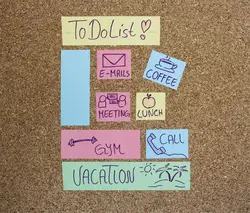 To Do List!
E-MAILS
COFFEE
MEETING
LUNCH
GYM
CALL
VACATION